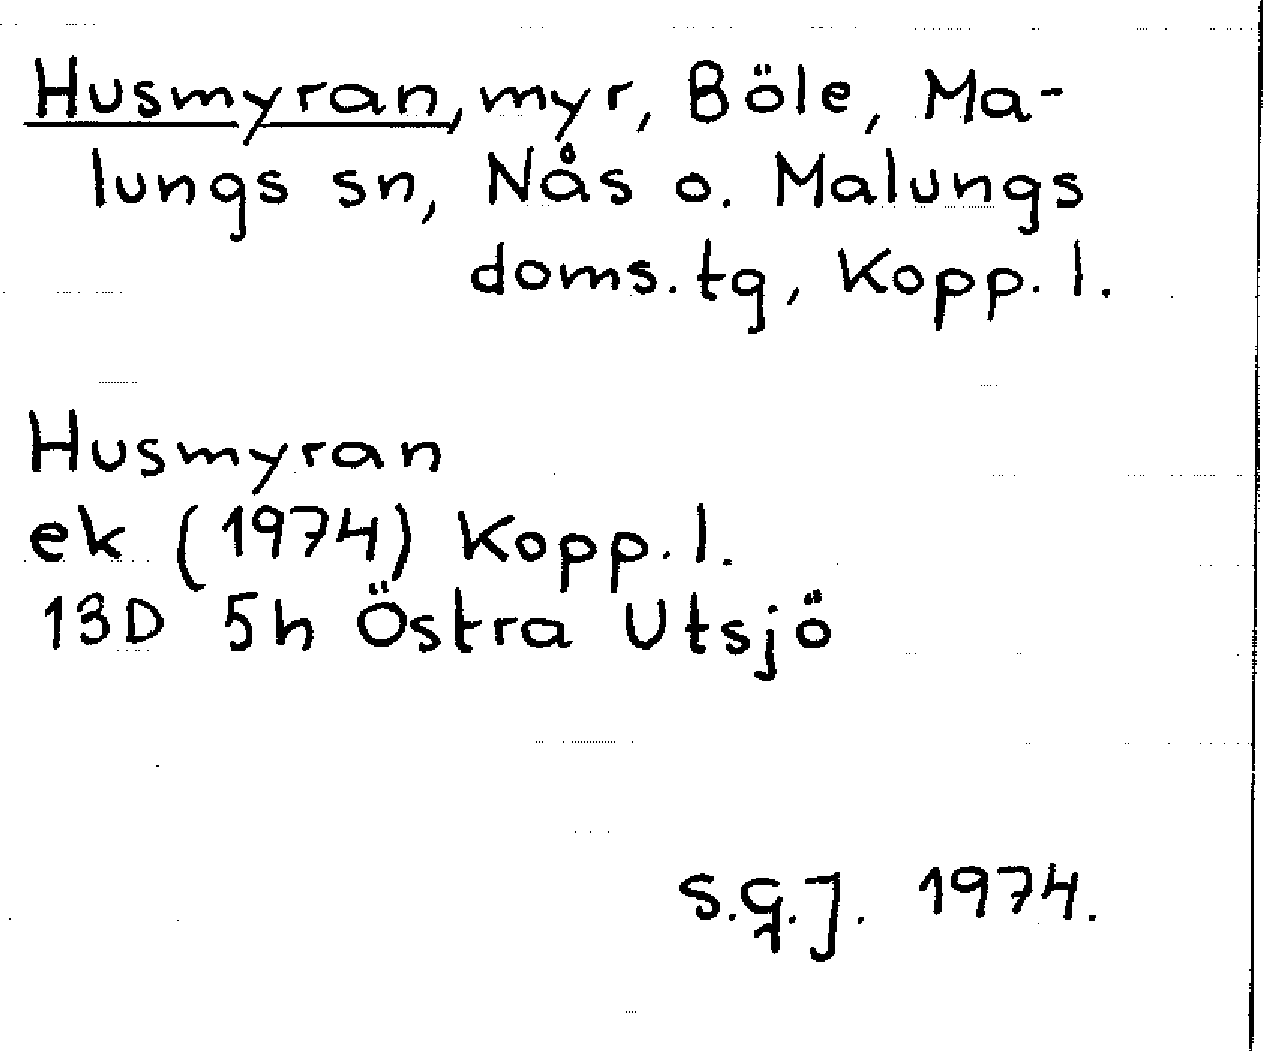 Husmyran, myr, Böle, Ma-
lungs sn, Nås o. Malungs
doms.tg, Kopp. l.
Husmyran
ek (1974) Kopp. l.
13D 5h Östra Utsjö
S.G.J. 1974.